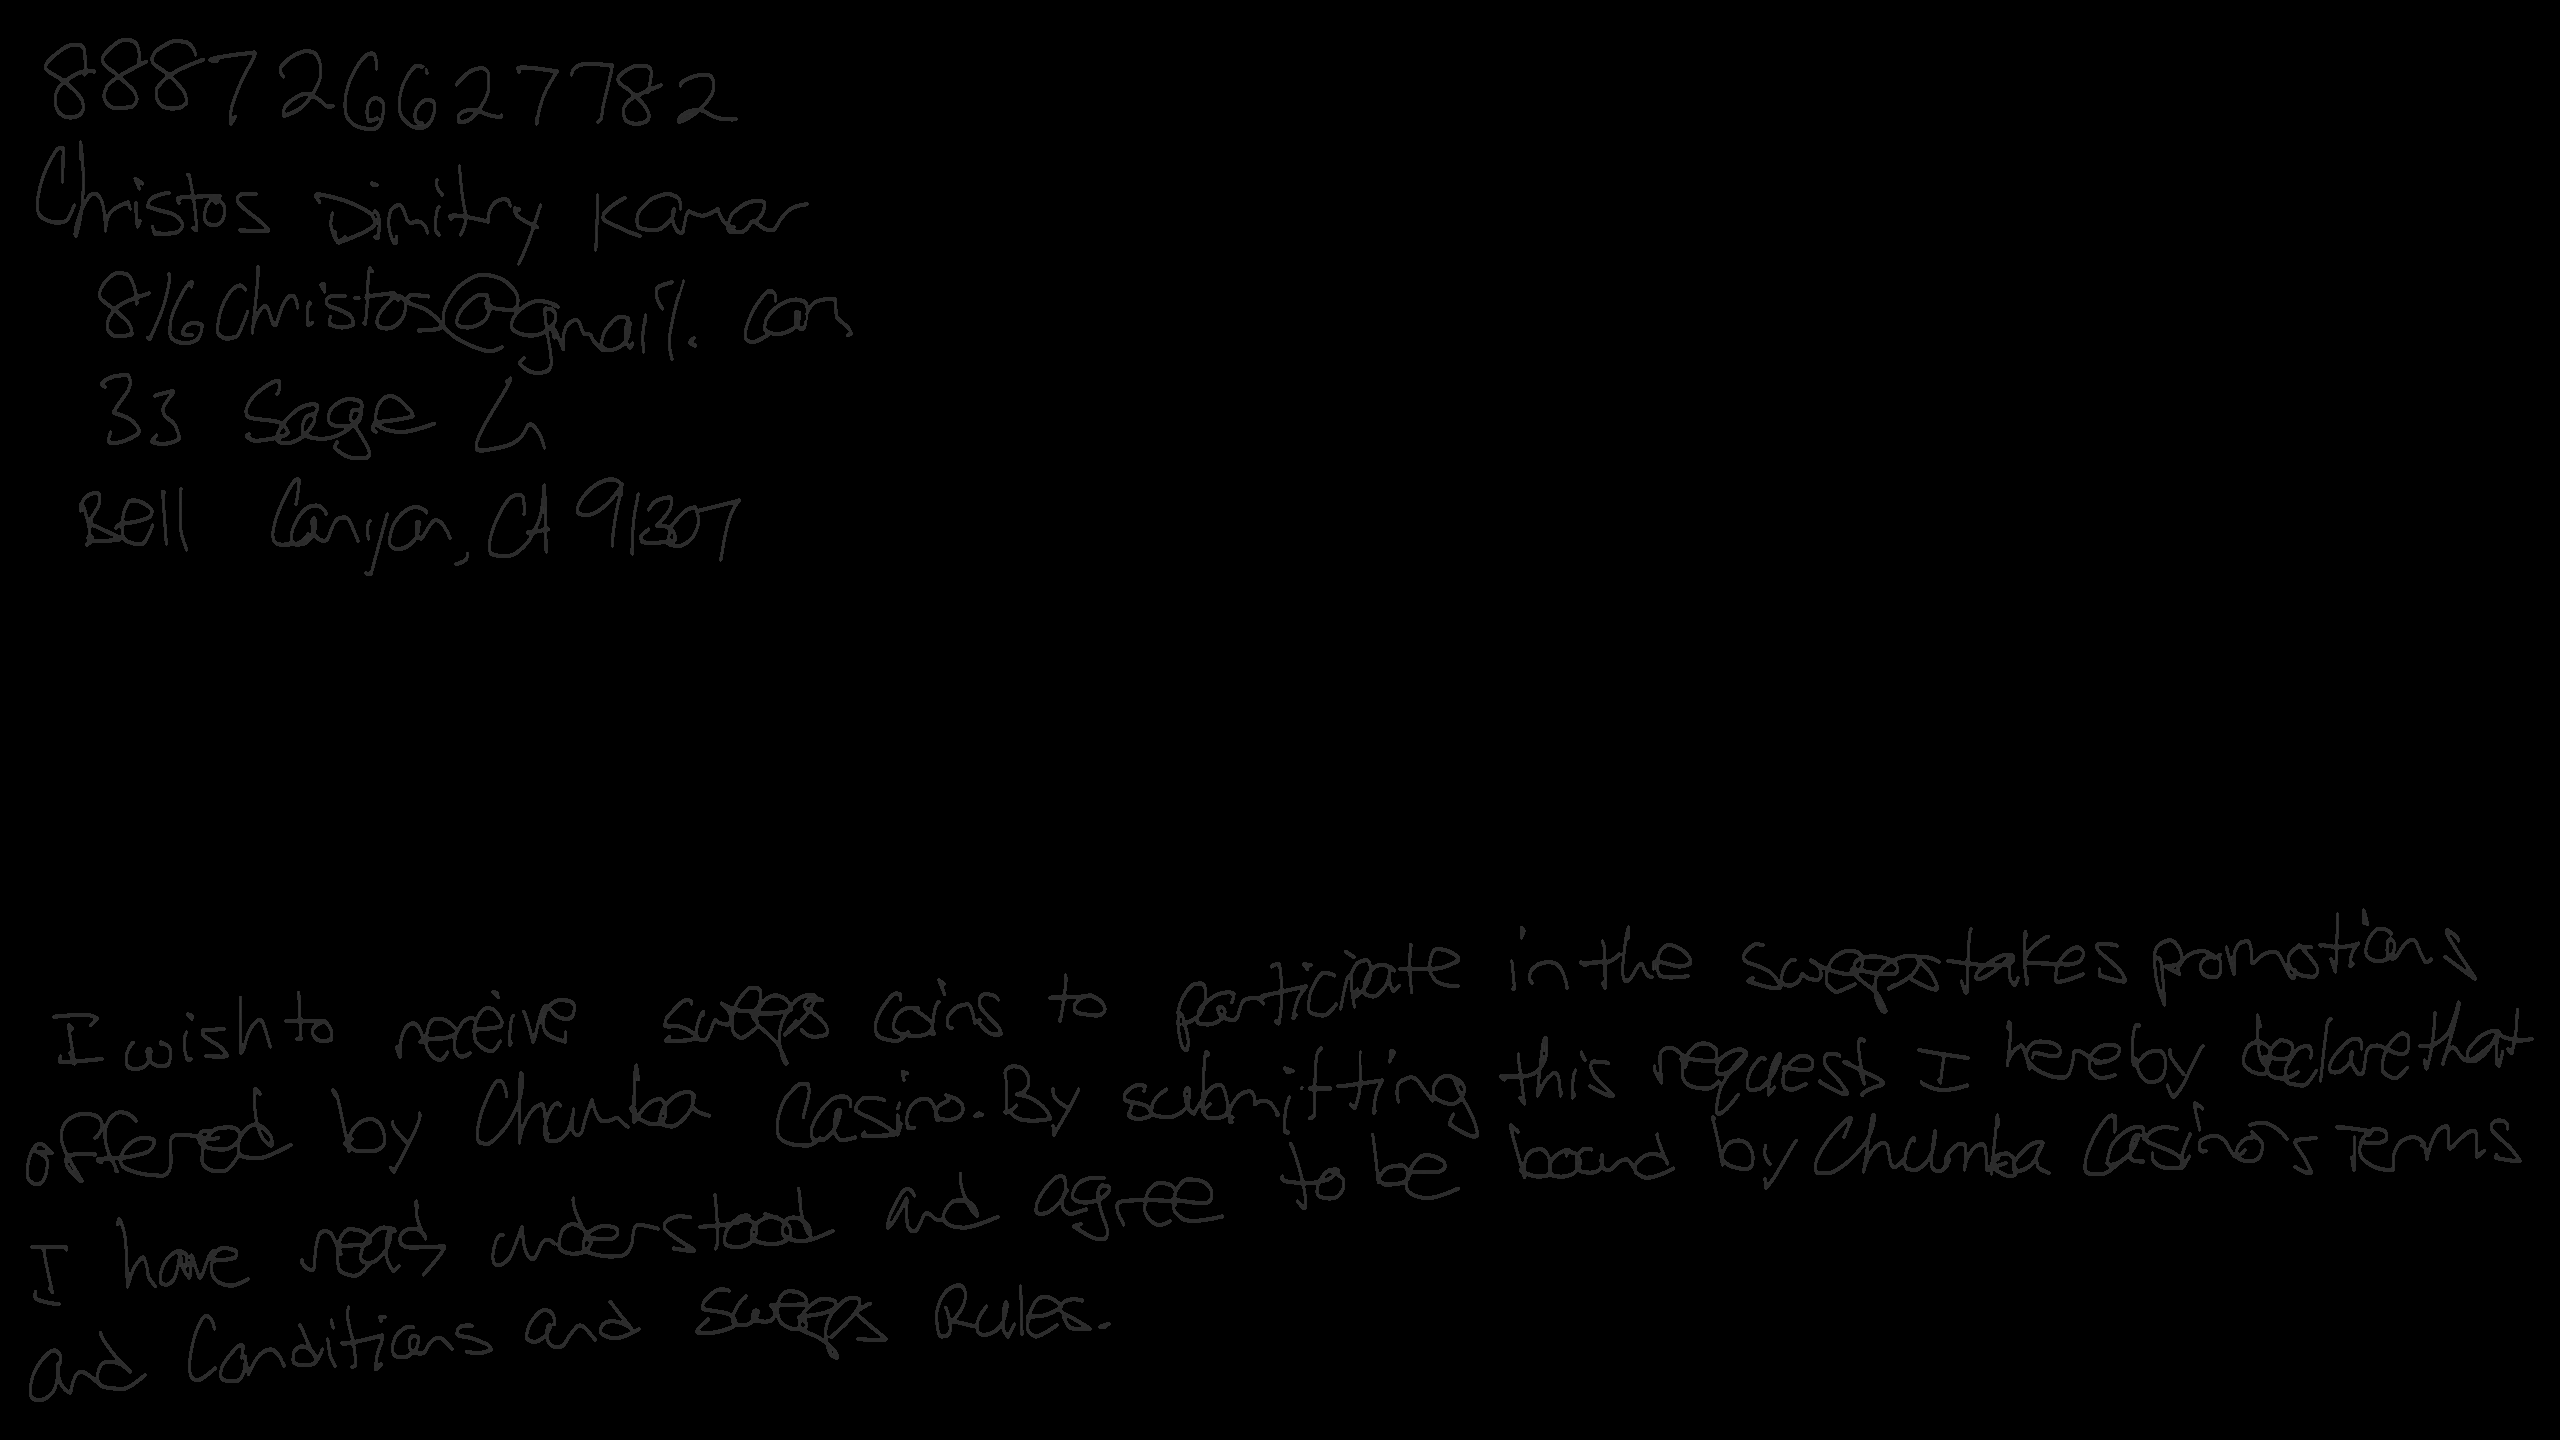 888726627782
Christos Dimitry Kamar
816christos@gmail.com
33 Sage Ln
Bell Canyon, CA 91307
I wish to receive sweeps coins to participate in the sweepstakes promotions
offered by Chumba Casino. By submitting this request I hereby declare that
I have read understood and agree to be bound by Chumba Casino's Terms
and Conditions and Sweeps Rules.